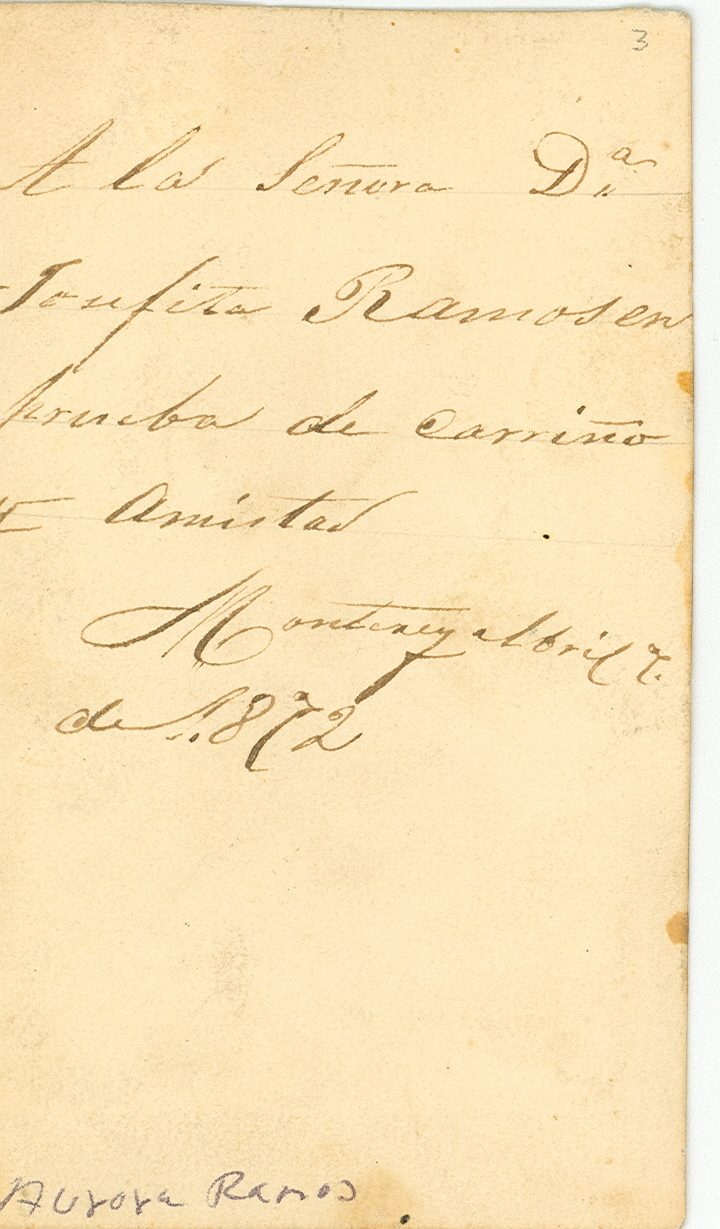 3
A la Señora Dª
Josefita Ramos en
prueba de carriño
y Amistad
Monterey Abril 7.
de 1872
Aurora Ramos